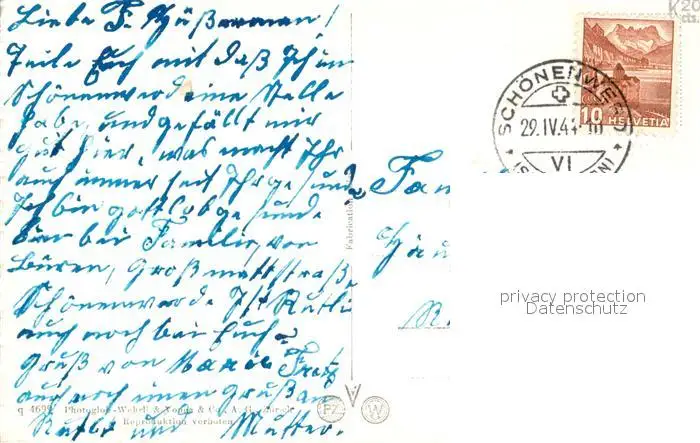 Liebe F. Häußermann!
Teile Euch mit daß Ich in
Schönenwerd eine Stelle
habe, und gefällt mir
gut hier, was macht Ihr
auch immer seit Ihr gesund
Ich bin gottlob gesund
bin bei Familie, von
Büren, Großmattstraße
Schönenwerd. Ist Rutli
auch noch bei Euch?
Gruß von Marie Frei
auch noch einen Gruß an
Rutli und Mutter.
q 4699 Photoglob-Wehrli & Vouga & Co., A. G. Zürich
Reproduktion verboten
Fabrication
PZ W
Fam
Häu
SCHÖNENWERD
29.IV.44-10
VI
10 HELVETIA
privacy protection
Datenschutz